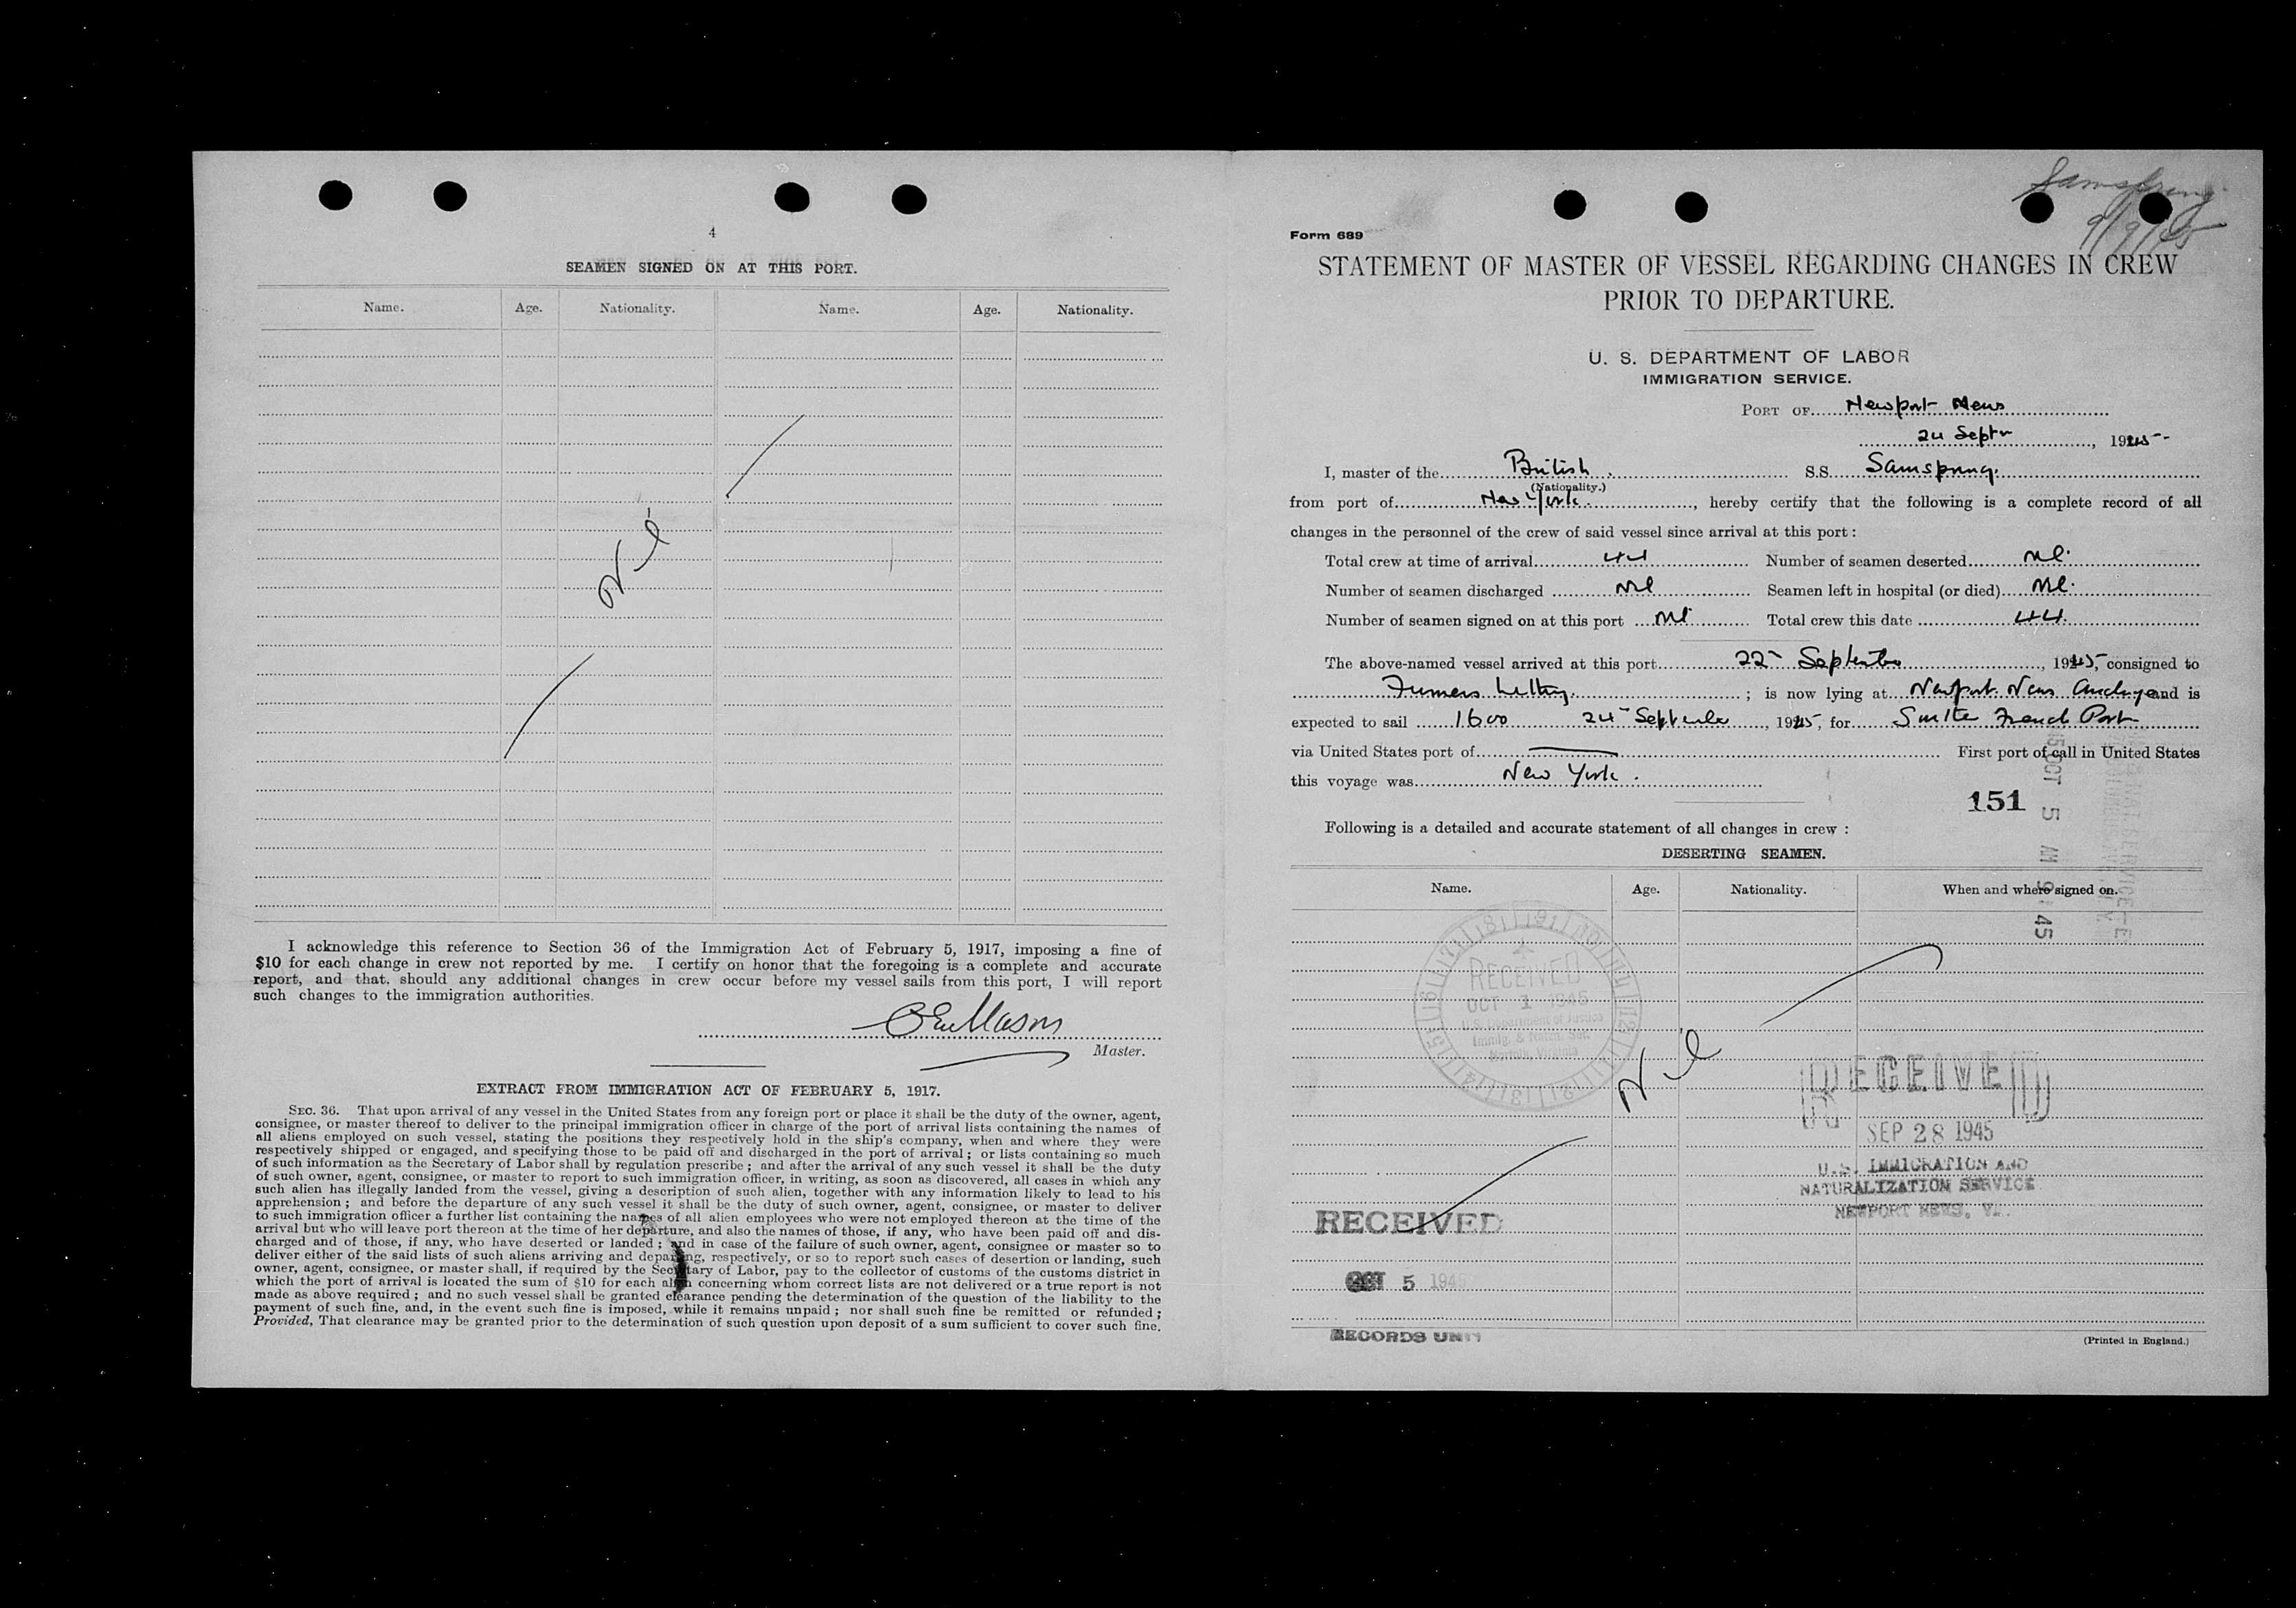 4
SEAMEN SIGNED ON AT THIS PORT.
Name. Age. Nationality. Name. Age. Nationality.
Nil
I acknowledge this reference to Section 36 of the Immigration Act of February 5, 1917, imposing a fine of
$10 for each change in crew not reported by me. I certify on honor that the foregoing is a complete and accurate
report, and that, should any additional changes in crew occur before my vessel sails from this port, I will report
such changes to the immigration authorities.
Mason
Master.
EXTRACT FROM IMMIGRATION ACT OF FEBRUARY 5, 1917.
SEC. 36. That upon arrival of any vessel in the United States from any foreign port or place it shall be the duty of the owner, agent,
consignee, or master thereof to deliver to the principal immigration officer in charge of the port of arrival lists containing the names of
all aliens employed on such vessel, stating the positions they respectively hold in the ship's company, when and where they were
respectively shipped or engaged, and specifying those to be paid off and discharged in the port of arrival; or lists containing so much
of such information as the Secretary of Labor shall by regulation prescribe; and after the arrival of any such vessel it shall be the duty
of such owner, agent, consignee, or master to report to such immigration officer, in writing, as soon as discovered, all cases in which any
such alien has illegally landed from the vessel, giving a description of such alien, together with any information likely to lead to his
apprehension; and before the departure of any such vessel it shall be the duty of such owner, agent, consignee, or master to deliver
to such immigration officer a further list containing the names of all alien employees who were not employed thereon at the time of the
arrival but who will leave port thereon at the time of her departure, and also the names of those, if any, who have been paid off and dis-
charged and of those, if any, who have deserted or landed; and in case of the failure of such owner, agent, consignee or master so to
deliver either of the said lists of such aliens arriving and departing, respectively, or so to report such cases of desertion or landing, such
owner, agent, consignee, or master shall, if required by the Secretary of Labor, pay to the collector of customs of the customs district in
which the port of arrival is located the sum of $10 for each alien concerning whom correct lists are not delivered or a true report is not
made as above required; and no such vessel shall be granted clearance pending the determination of the question of the liability to the
payment of such fine, and, in the event such fine is imposed, while it remains unpaid; nor shall such fine be remitted or refunded;
Provided, That clearance may be granted prior to the determination of such question upon deposit of a sum sufficient to cover such fine.
Samspring
9/9/45
Form 689
STATEMENT OF MASTER OF VESSEL REGARDING CHANGES IN CREW
PRIOR TO DEPARTURE.
U. S. DEPARTMENT OF LABOR
IMMIGRATION SERVICE.
PORT OF Newport News
24 Septr, 1945
I, master of the British S.S. Samspring.
(Nationality.)
from port of New York, hereby certify that the following is a complete record of all
changes in the personnel of the crew of said vessel since arrival at this port:
Total crew at time of arrival 44 Number of seamen deserted Nil.
Number of seamen discharged Nil Seamen left in hospital (or died) Nil.
Number of seamen signed on at this port Nil Total crew this date 44.
The above-named vessel arrived at this port 22 September, 1945, consigned to
Furness Withy.; is now lying at Newport News Anchge and is
expected to sail 1600 24 September, 1945, for French Port
via United States port of First port of call in United States
this voyage was New York.
151
45 OCT 5 AM 9 45
Following is a detailed and accurate statement of all changes in crew:
DESERTING SEAMEN.
Name. Age. Nationality. When and where signed on.
RECEIVED
OCT 1 1945
U.S. Department of Justice
Immig. & Natzn. Ser.
Norfolk, Virginia
Nil
RECEIVED
SEP 28 1945
U.S. IMMIGRATION AND
NATURALIZATION SERVICE
NEWPORT NEWS, VA.
RECEIVED
OCT 5 1945
RECORDS UNIT
(Printed in England.)